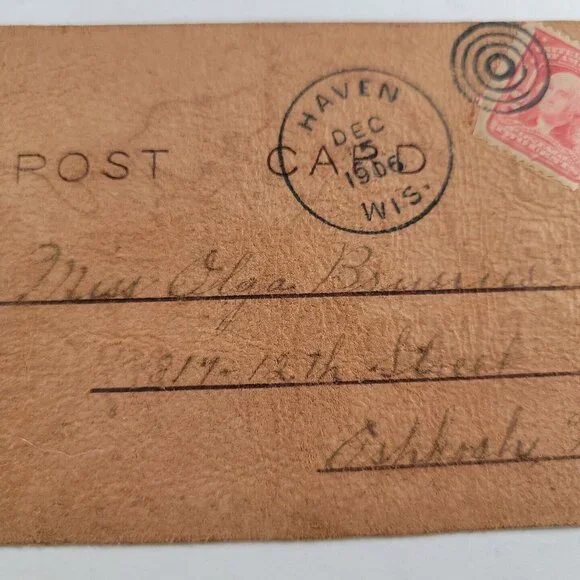 POST CARD
HAVEN
DEC
5
1906
WIS.
Miss Olga
917-12th Street
Oshkosh